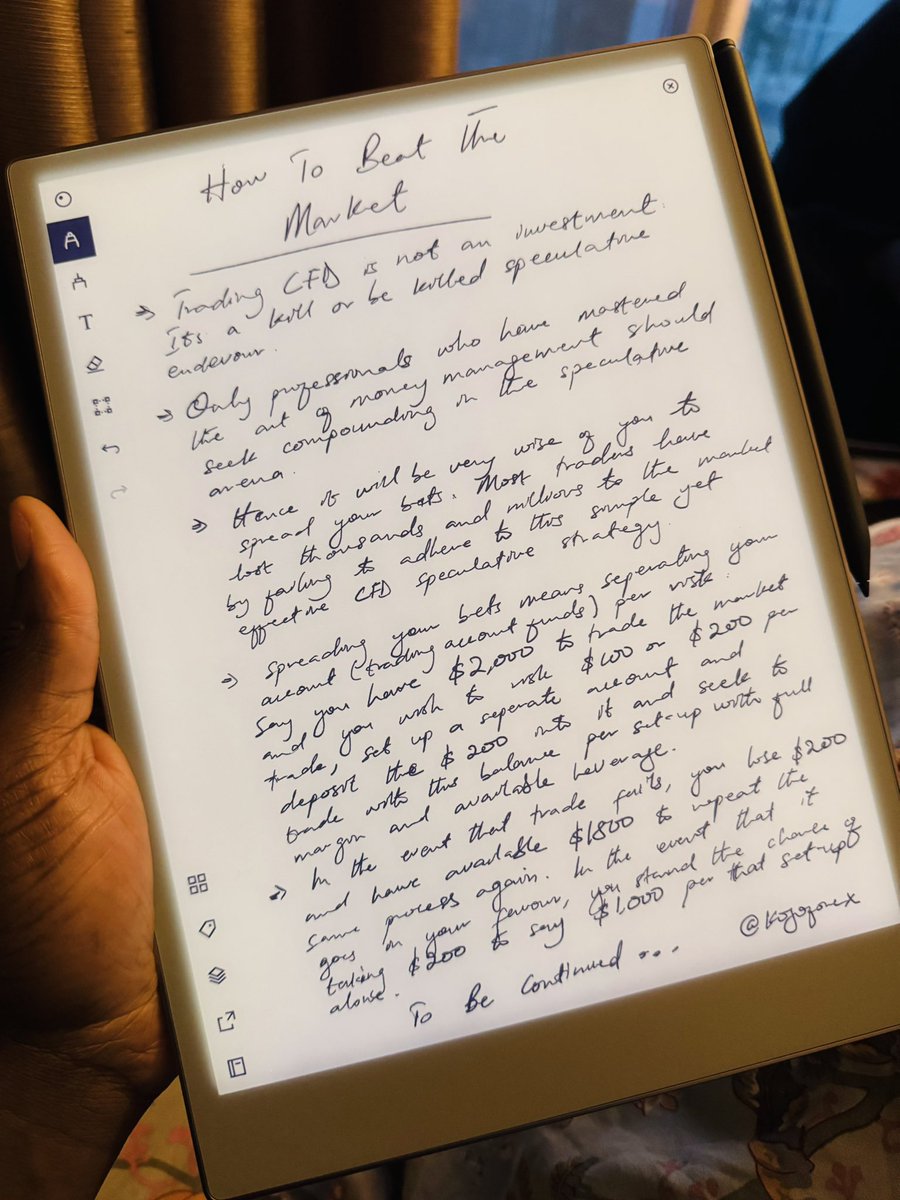 How To Beat The
Market
→ Trading CFD is not an investment.
Its a kill or be killed speculative
endevour.
→ Only professionals who have mastered
the art of money management should
seek compounding in the speculative
arena.
→ Hence it will be very wise of you to
spread your bets. Most traders have
lost thousands and millions to the market
by failing to adhere to this simple yet
effective CFD speculative strategy.
→ Spreading your bets means seperating your
account (trading account funds) per risk.
Say you have $2,000 to trade the market
and you wish to risk $100 or $200 per
trade, set up a seperate account and
deposit the $200 into it and seek to
trade with this balance per set-up with full
margin and available leverage.
→ In the event that trade fails, you lose $200
and have available $1800 to repeat the
same process again. In the event that it
goes in your favour, you stand the chance of
taking $200 to say $1,000 per that set-up
alone.
@kojoforex
To Be Continued...
A
T